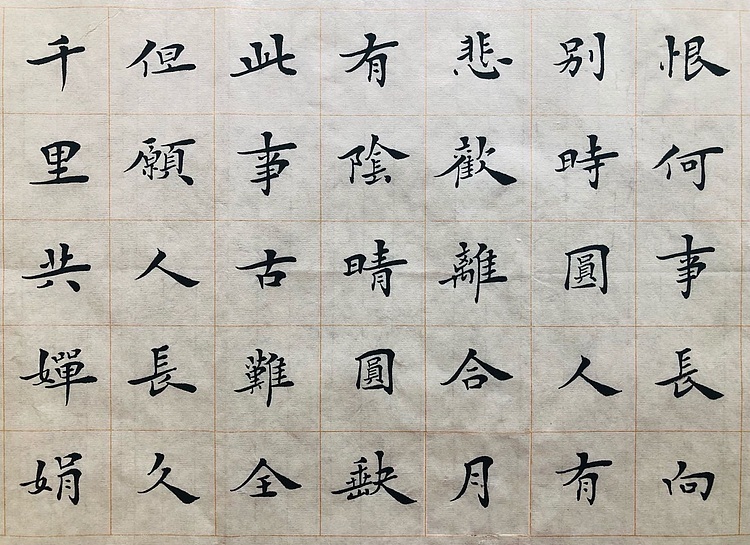 恨何事長向
別時圓人有
悲歡離合月
有陰晴圓缺
此事古難全
但願人長久
千里共嬋娟